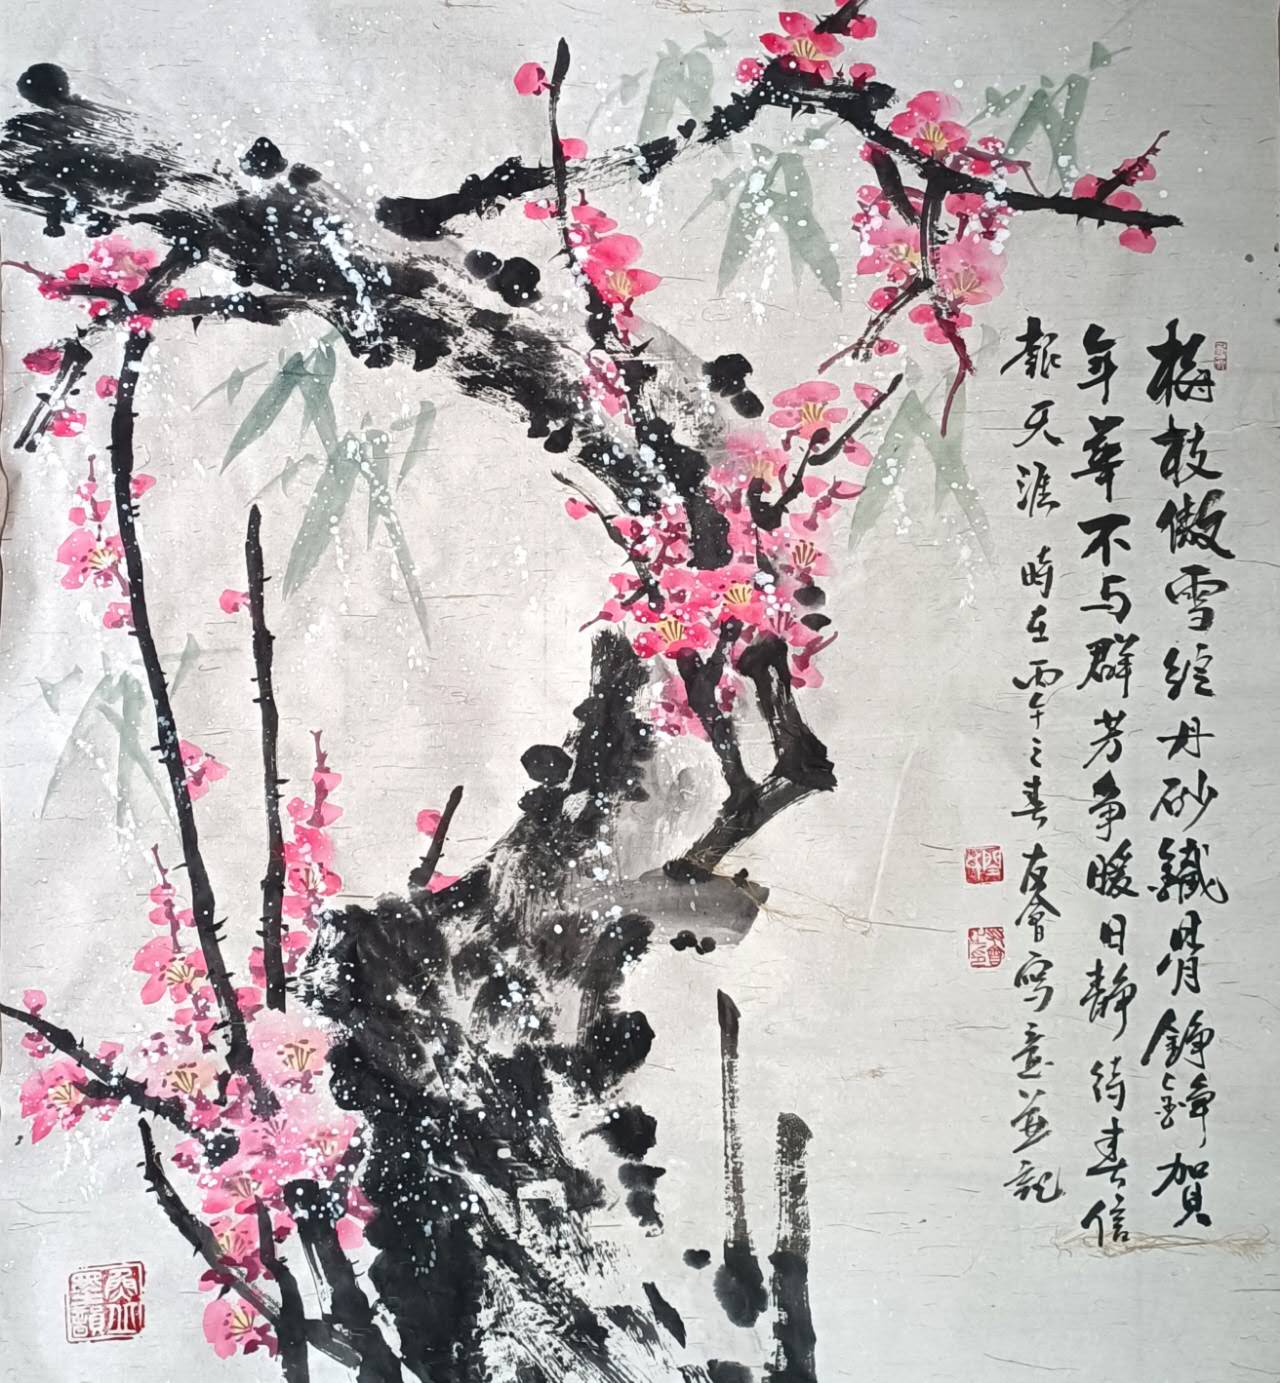 梅枝傲雪绽丹砂鐵骨錚錚賀
年華不与群芳争暖日静待春信
報天涯 時在丙午之春 友會写意並記